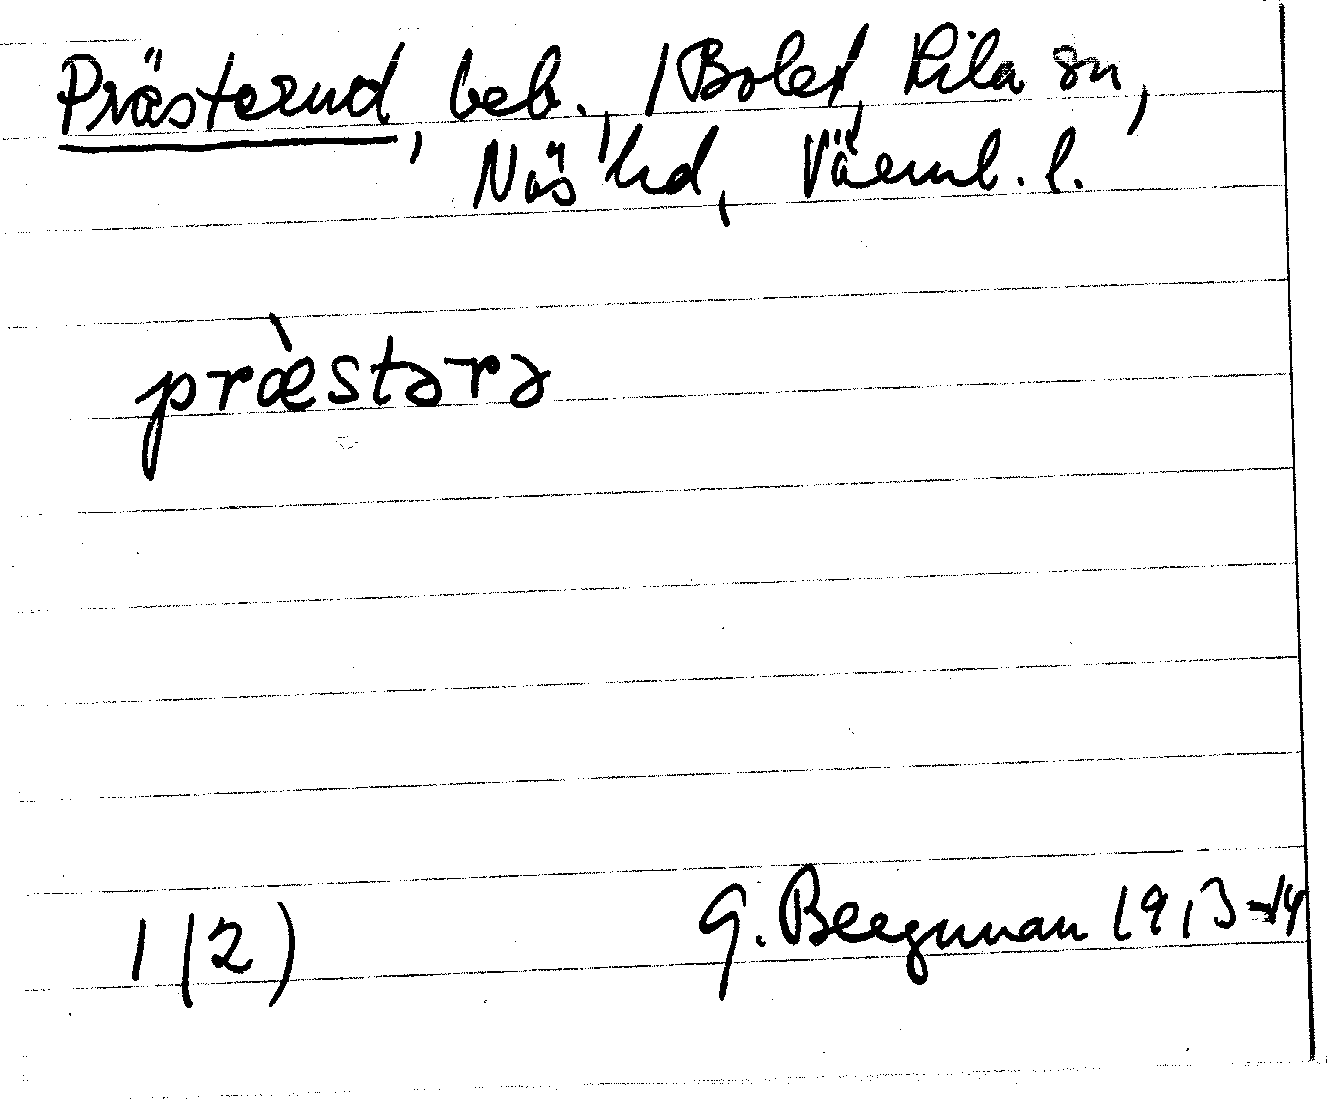 Prästerud, beb., /Bolet/, Kila sn,
Näs hd, Värml. l.
præ̀stərə
1 (2)
G. Bergman 1913-14